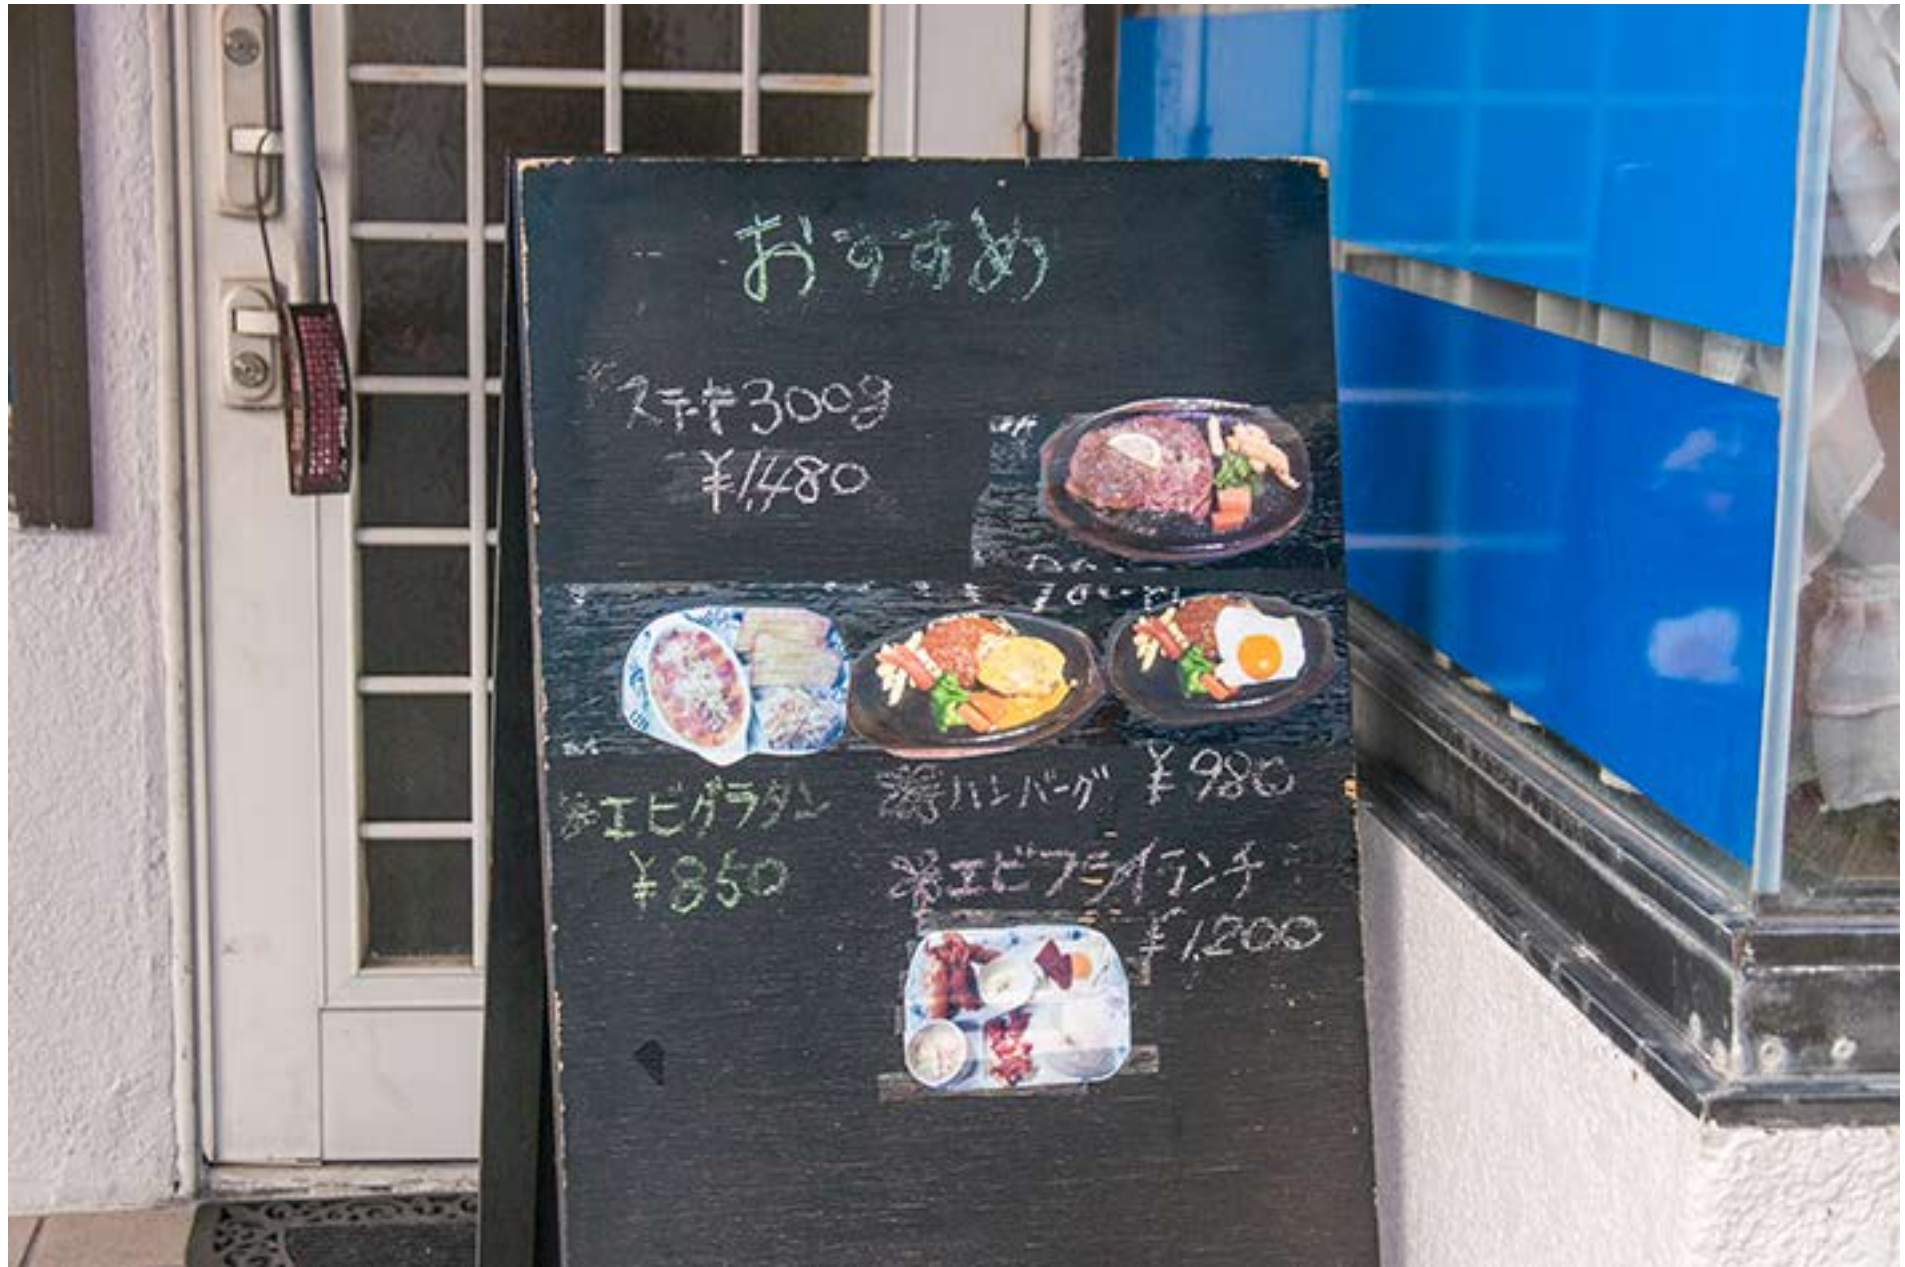 おすすめ
※ステーキ300g
¥1,480
※エビグラタン
¥850
※ハンバーグ ¥980
※エビフライランチ
¥1,200